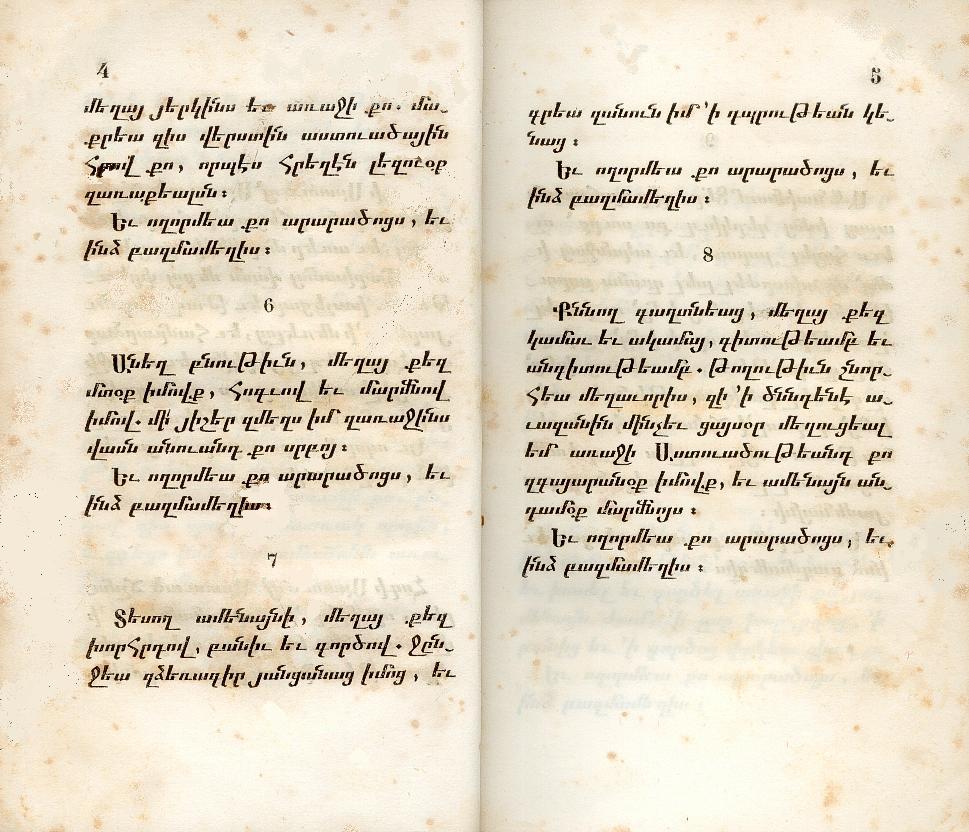 4
մեղայ յերկինս եւ առաջի քո. մա֊
քրեա զիս վերստին աստուածային
հրով քո, որպէս հրեղէն լեզուօք
զառաքեալսն։
Եւ ողորմեա քո արարածոցս, եւ
ինձ բազմամեղիս։
6
Անեղ բնութիւն, մեղայ քեզ
մտօք իմովք, հոգւով եւ մարմնով
իմով. մի՛ յիշեր զմեղս իմ զառաջինս
վասն անուանդ քո սրբոյ։
Եւ ողորմեա քո արարածոցս, եւ
ինձ բազմամեղիս։
7
Տեսող ամենայնի, մեղայ քեզ
խորհրդով, բանիւ եւ գործով. ջըն֊
ջեա զձեռագիր յանցանաց իմոց, եւ
5
գրեա զանուն իմ ՚ի դպրութեան կե֊
նաց։
Եւ ողորմեա քո արարածոցս, եւ
ինձ բազմամեղիս։
8
Քննող գաղտնեաց, մեղայ քեզ
կամաւ եւ ակամայ, գիտութեամբ եւ
անգիտութեամբ. թողութիւն շնոր֊
հեա մեղաւորիս, զի ՚ի ծննդենէ ա֊
ւազանին մինչեւ ցայսօր մեղուցեալ
եմ առաջի Աստուածութեանդ քո
զգայարանօք իմովք, եւ ամենայն ան֊
դամօք մարմնոյս։
Եւ ողորմեա քո արարածոցս, եւ
ինձ բազմամեղիս։